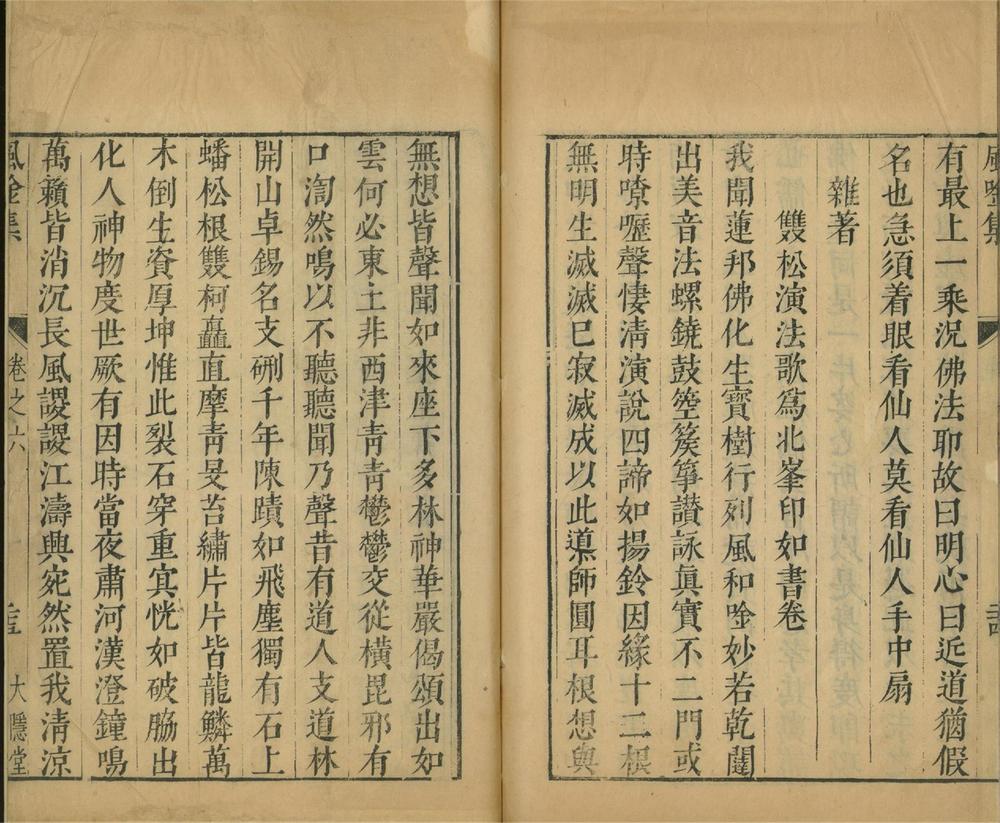 有最上一乘況佛法耶故曰明心曰近道猶假
名也急須着眼看仙人莫看仙人手中扇
雜著
雙松演法歌爲北峯印如書卷
我聞蓮邦佛化生寶樹行列風和唫妙若乾闥
出美音法螺鐃鼓箜篌箏讃詠眞實不二門或
時嘹嚦聲悽淸演說四諦如揚鈴因緣十二根
無明生滅滅巳寂滅成以此導師圓耳根想與
無想皆聲聞如來座下多林神華嚴偈頌出如
雲何必東土非西津靑靑鬱鬱交從橫毘邪有
口淘然鳴以不聽聽聞乃聲昔有道人支道林
開山卓錫名支硎千年陳蹟如飛塵獨有石上
蟠松根雙柯矗直摩靑旻苔繡片片皆龍鱗萬
木倒生資厚坤惟此裂石穿重宾恍如破脇出
化人神物度世厥有因時當夜肅河漢澄鐘鳴
萬籟皆消沉長風謖謖江濤興宛然置我淸涼
卷之六
大隱堂